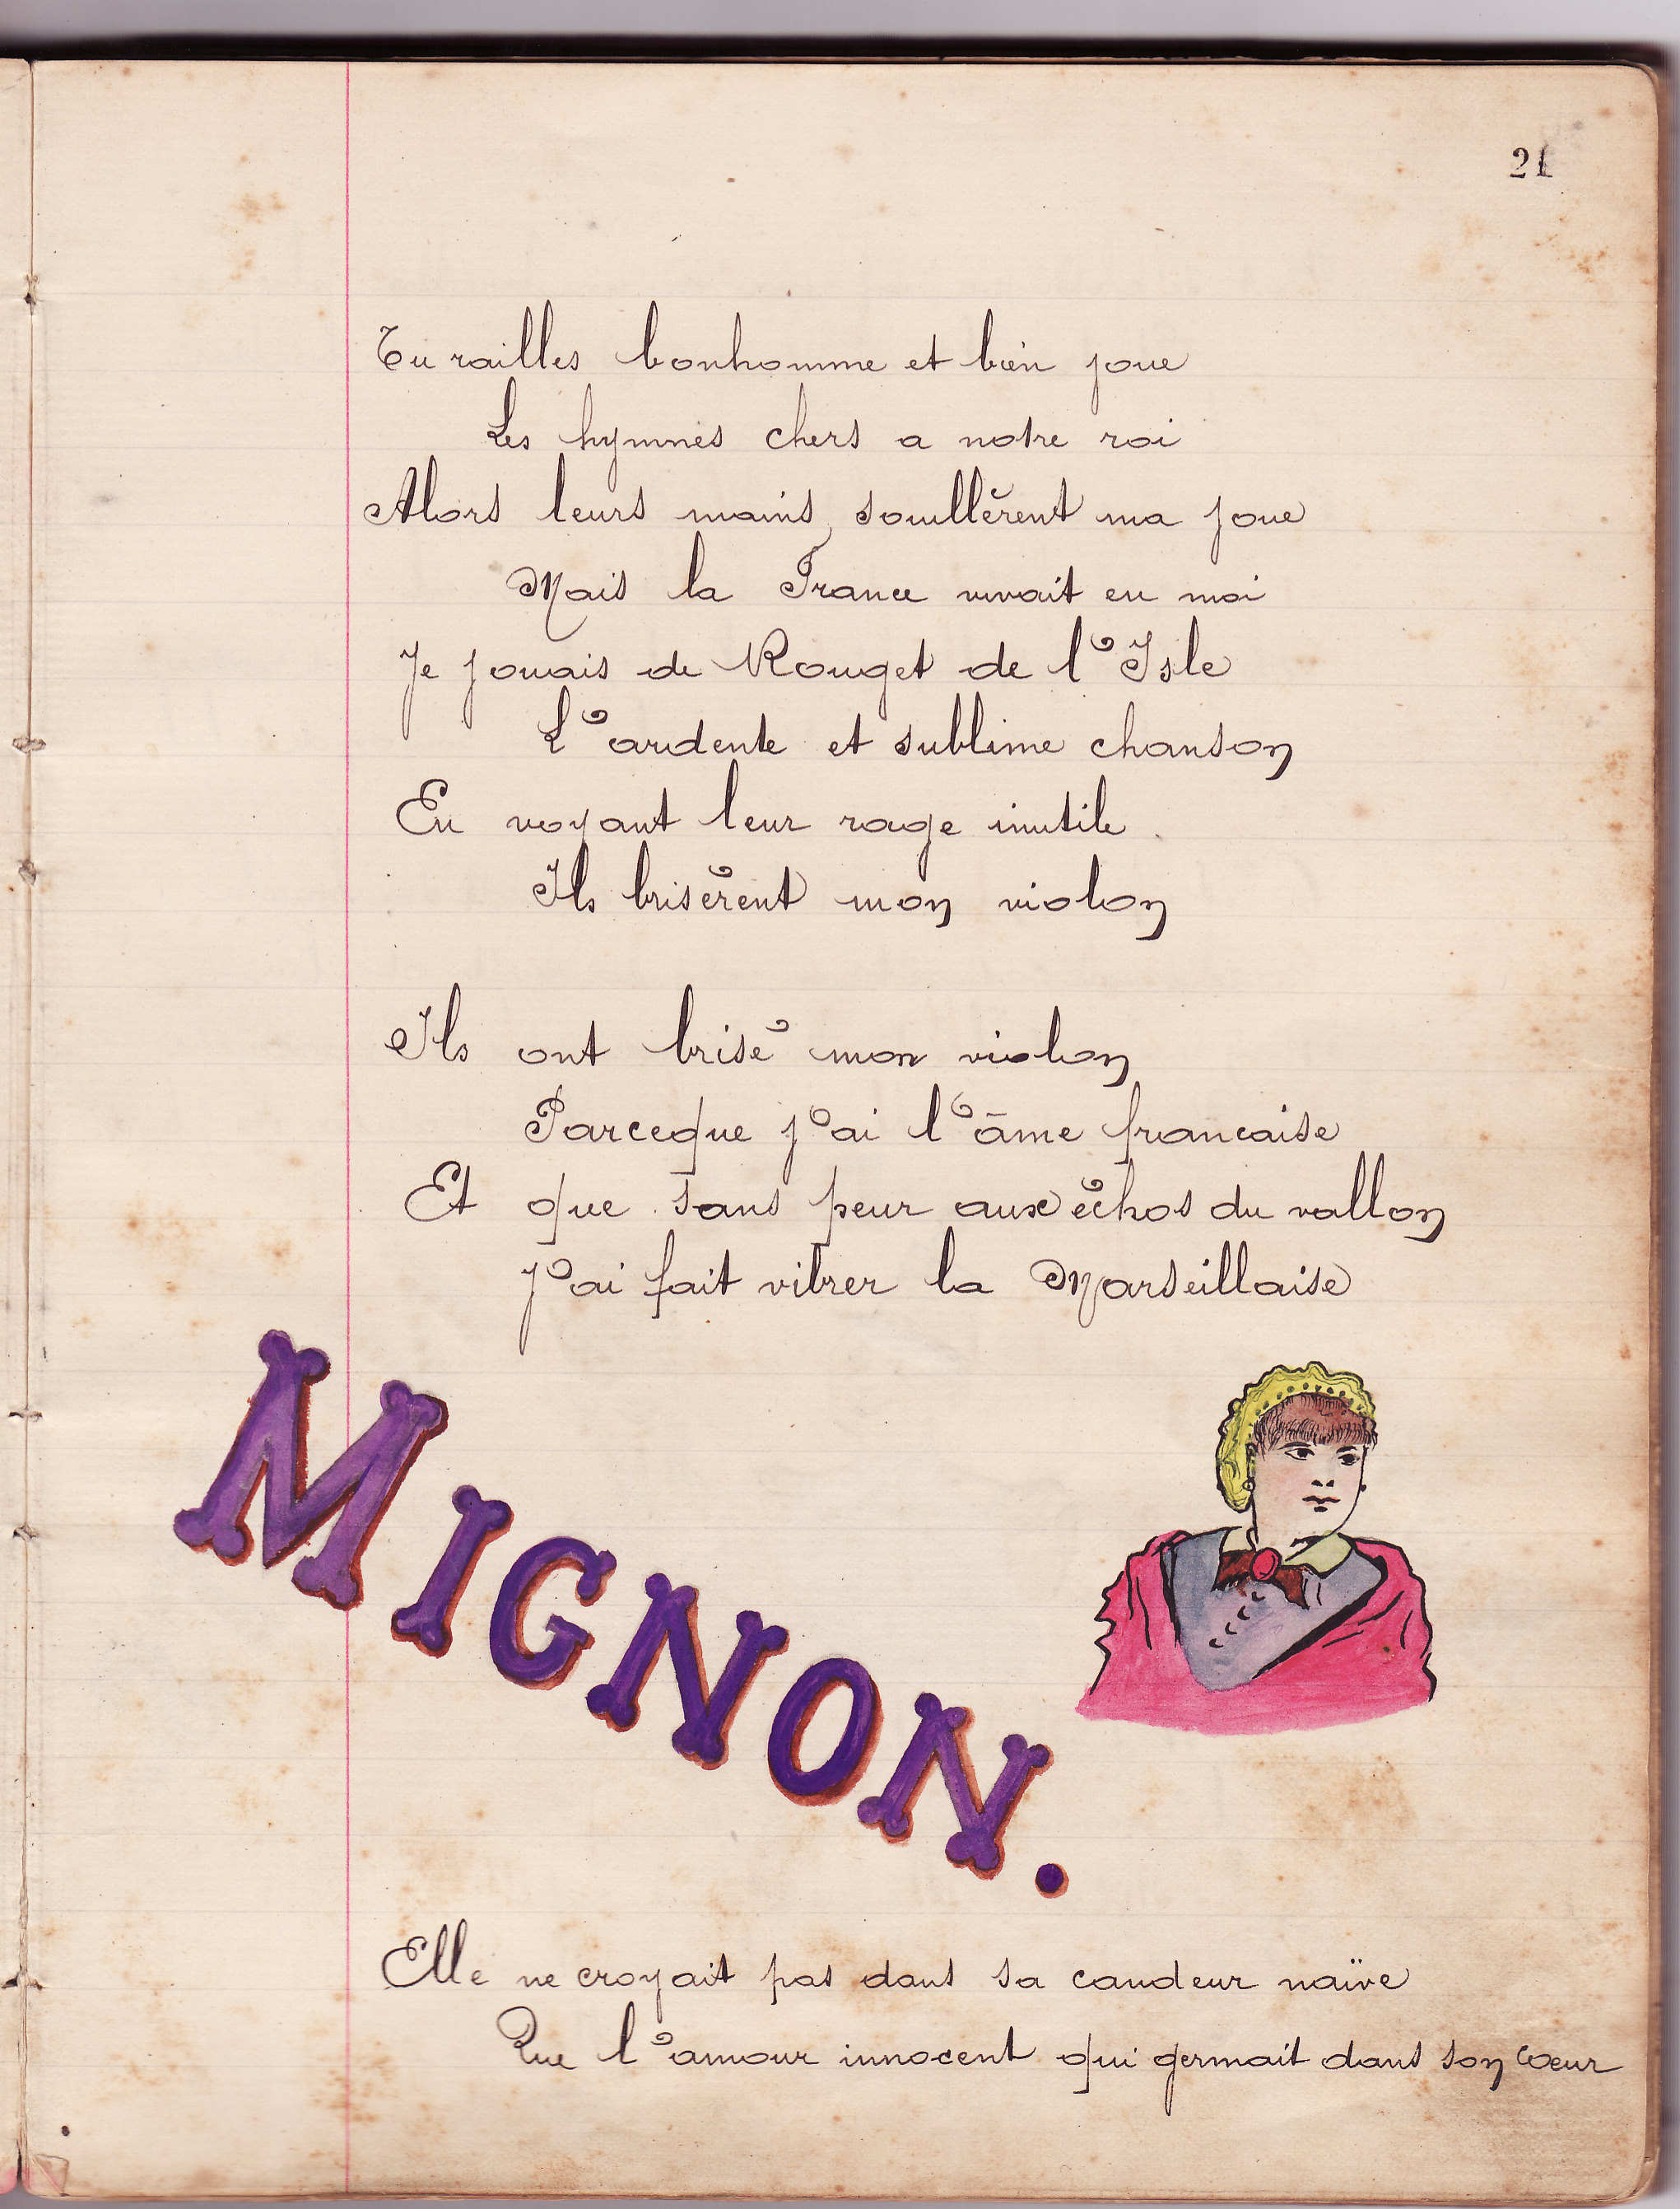 21
Tu railles bonhomme et bien joue
Les hymnes chers a notre roi
Alors leurs mains souillèrent ma joue
Mais la France vivait en moi
Je jouais de Rouget de l'Isle
L'ardente et sublime chanson
En voyant leur rage inutile
Ils brisèrent mon violon
Ils ont brisé mon violon
Parceque j'ai l'âme francaise
Et que sans peur aux échos du vallon
J'ai fait vibrer la Marseillaise
MIGNON.
Elle ne croyait pas dans sa candeur naïve
Que l'amour innocent qui germait dans son cœur